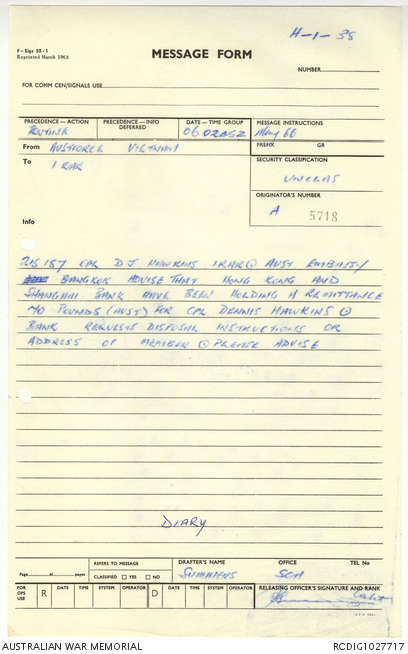 H-1-35
F-Sigs 55-1
Reprinted March 1963
MESSAGE FORM
NUMBER
FOR COMM CEN/SIGNALS USE
PRECEDENCE — ACTION PRECEDENCE — INFO DEFERRED DATE — TIME GROUP MESSAGE INSTRUCTIONS
ROUTINE 060205Z May 66
From AUSTFORCE VIETNAM PREFIX GR
To 1 RAR SECURITY CLASSIFICATION
UNCLAS
ORIGINATOR'S NUMBER
Info A 5718
CPL DJ HAWKINS 1RAR @ AUST EMBASSY
BANGKOK ADVISE THAT HONG KONG AND
SHANGHAI BANK HAVE BEEN HOLDING A REMITTANCE
POUNDS (AUST) FOR CPL DENNIS HAWKINS @
BANK REQUESTS DISPOSAL INSTRUCTIONS OR
ADDRESS OF MEMBER @ PLEASE ADVISE
DIARY
Page of pages REFERS TO MESSAGE DRAFTER'S NAME OFFICE TEL No
CLASSIFIED YES NO SUMMERS
FOR OPS USE R DATE TIME SYSTEM OPERATOR D DATE TIME SYSTEM OPERATOR RELEASING OFFICER'S SIGNATURE AND RANK
AUSTRALIAN WAR MEMORIAL RCDIG1027717